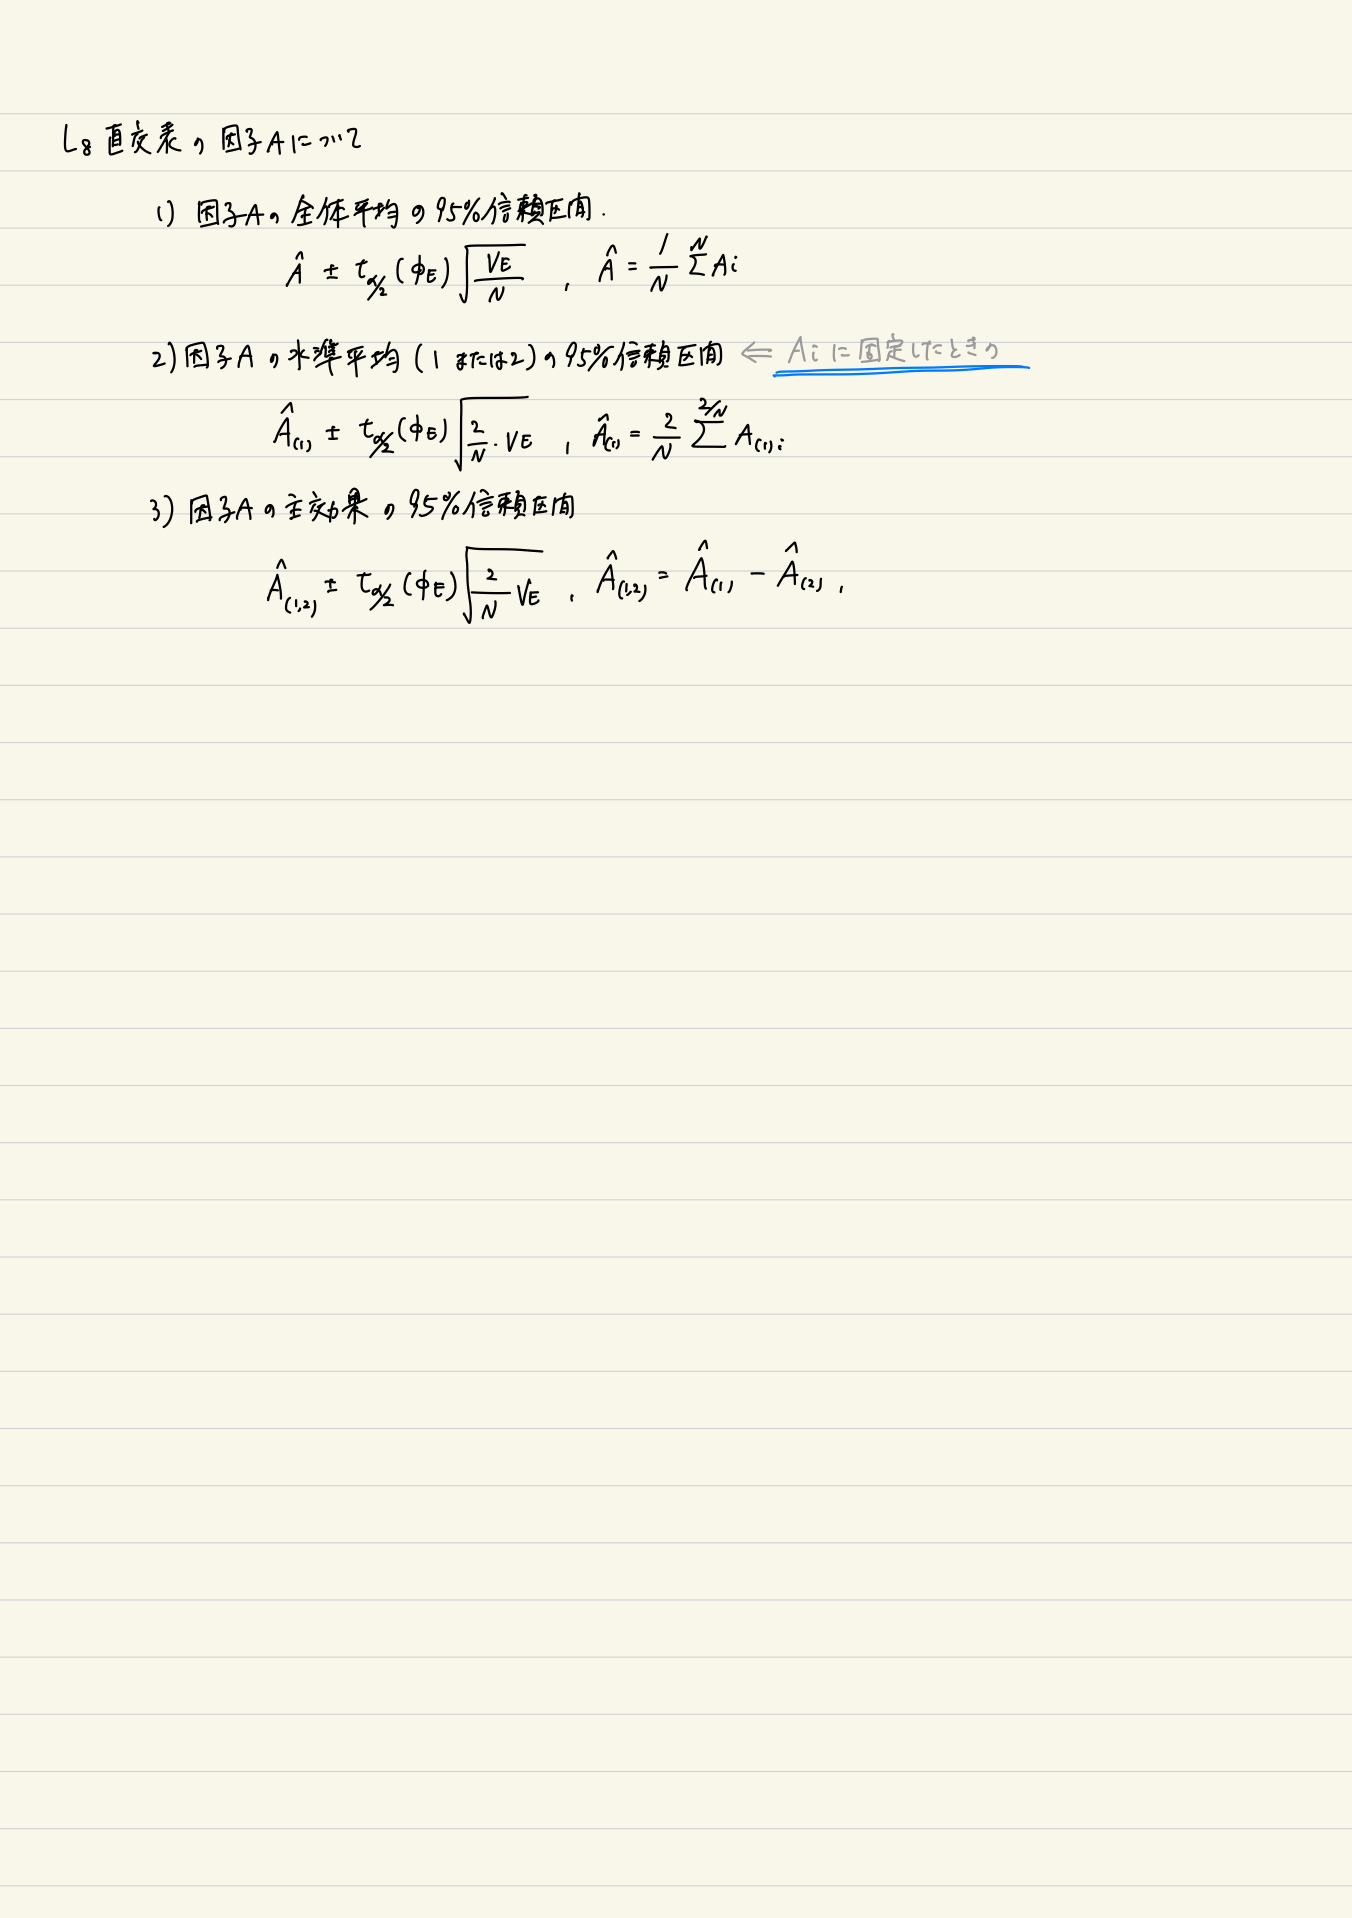 L₈ 直交表の因子Aについて
1) 因子Aの全体平均の95%信頼区間.
Â ± t_{α/2}(φ_E)√(V_E/N) , Â = 1/N Σ^N Ai
2) 因子Aの水準平均(1または2)の95%信頼区間 ⇐ Aiに固定したときの
Â_{(1)} ± t_{α/2}(φ_E)√(2/N · V_E) , Â_{(1)} = 2/N Σ^{2/N} A_{(1)i}
3) 因子Aの主効果の95%信頼区間
Â_{(1,2)} ± t_{α/2}(φ_E)√(2/N V_E) , Â_{(1,2)} = Â_{(1)} − Â_{(2)} ,